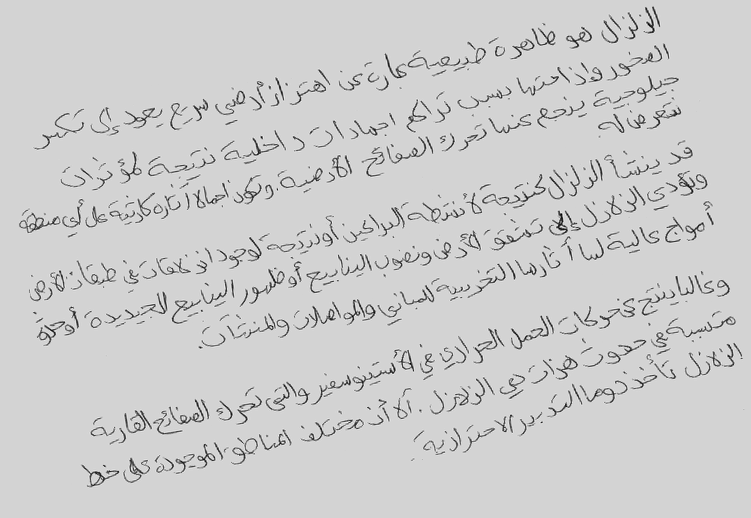 الزلزال هو ظاهرة طبيعية عبارة عن اهتزاز أرضي سريع يعود إلى تكسر
الصخور وإزاحتها بسبب تراكم اجهادات داخلية نتيجة لمؤثرات
جيلوجية ينجم عنها تحرك الصفائح الأرضية. وتكون اجمالا آثاره كارثية على أي منطقة
تتعرض له
قد ينشأ الزلزال كنتيجة لأنشطة البراكين أو نتيجة لوجود انزلاقات في طبقات الأرض
وتؤدي الزلازل إلى تشقق الأرض ونضوب الينابيع أو ظهور الينابيع الجديدة أو حدوث
أمواج عالية لها آثارها التخريبية للمباني والمواصلات والمنشآت.
وغالبا ينتج عن حركات الحمل الحراري في الأستينوسفير والتي تحرك الصفائح القارية
متسببة في حدوث هزات هي الزلازل. ألا أن مختلف المناطق الموجودة على خط
الزلازل تأخذ دوما التدبير الاحترازية.